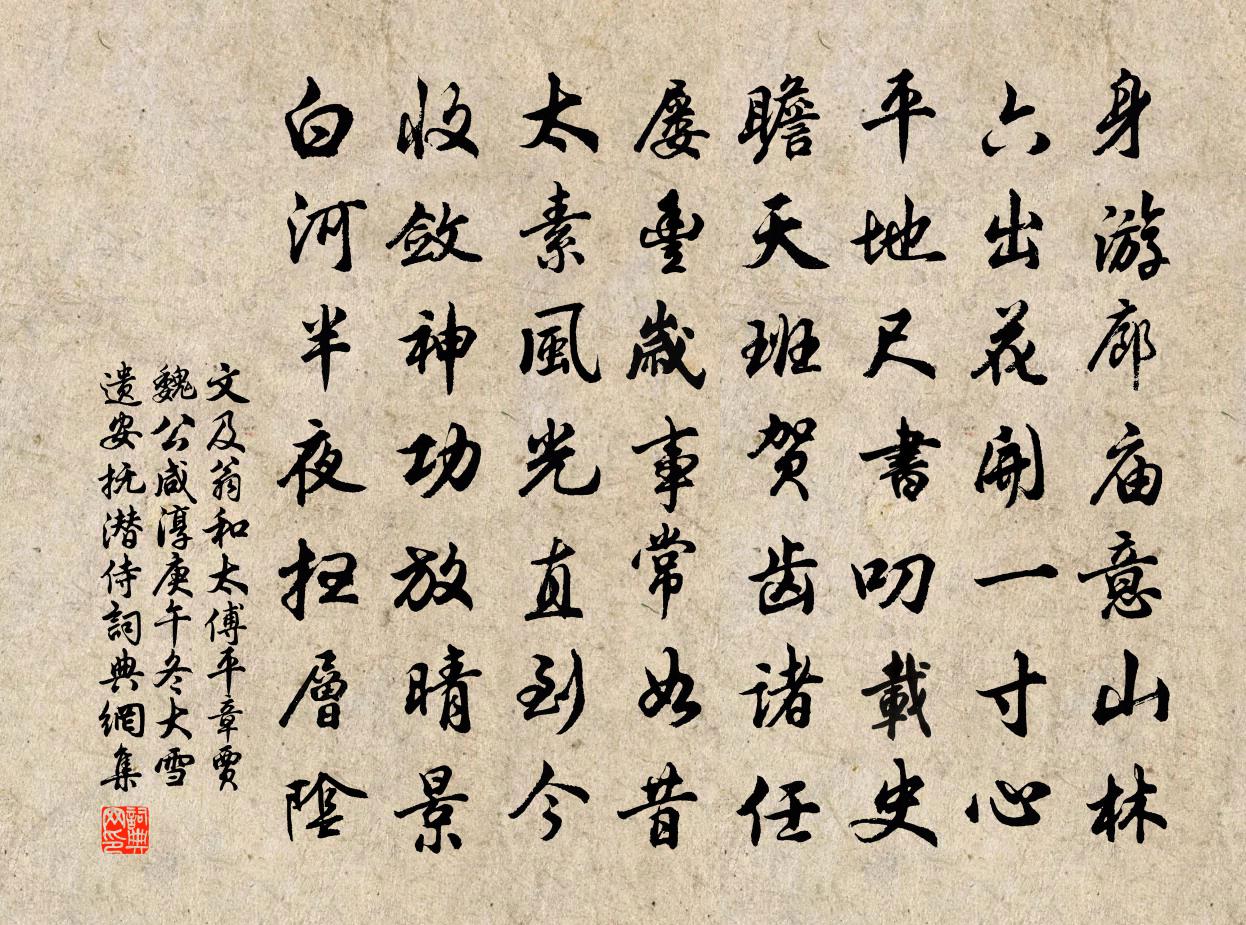 身游廊庙意山林
六出花開一寸心
平地尺書叨載史
瞻天班贺齿诸任
屡豊歲事常如昔
太素風光直到今
收斂神功放晴景
白河半夜扫層陰
文及翁和太傅平章賈
魏公咸淳庚午冬大雪
遗安抚潜侍詞典網集
詞典网印